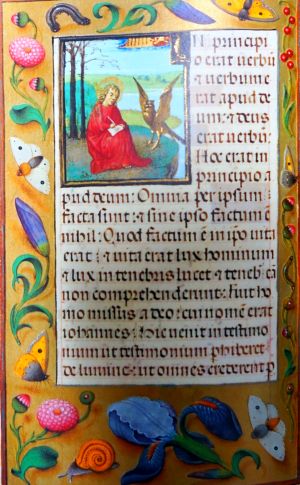 IN principi
o erat uerbū
& uerbum e
rat apud de
um: & deus
erat uerbū:
Hoc erat in
principio a
pud deum: Omnia per ipsum
facta sunt: & sine ipso factum ē
nihil: Quod factum ē in ipō uita
erat: & uita erat lux hominum
& lux in tenebris lucet & teneb eā
non comprehenderunt: Fuit ho
mo missus a deo: cui nomē erat
iohannes: Hic uenit in testimo
nium ut testimonium phiberet
de lumine: ut omnes crederent p